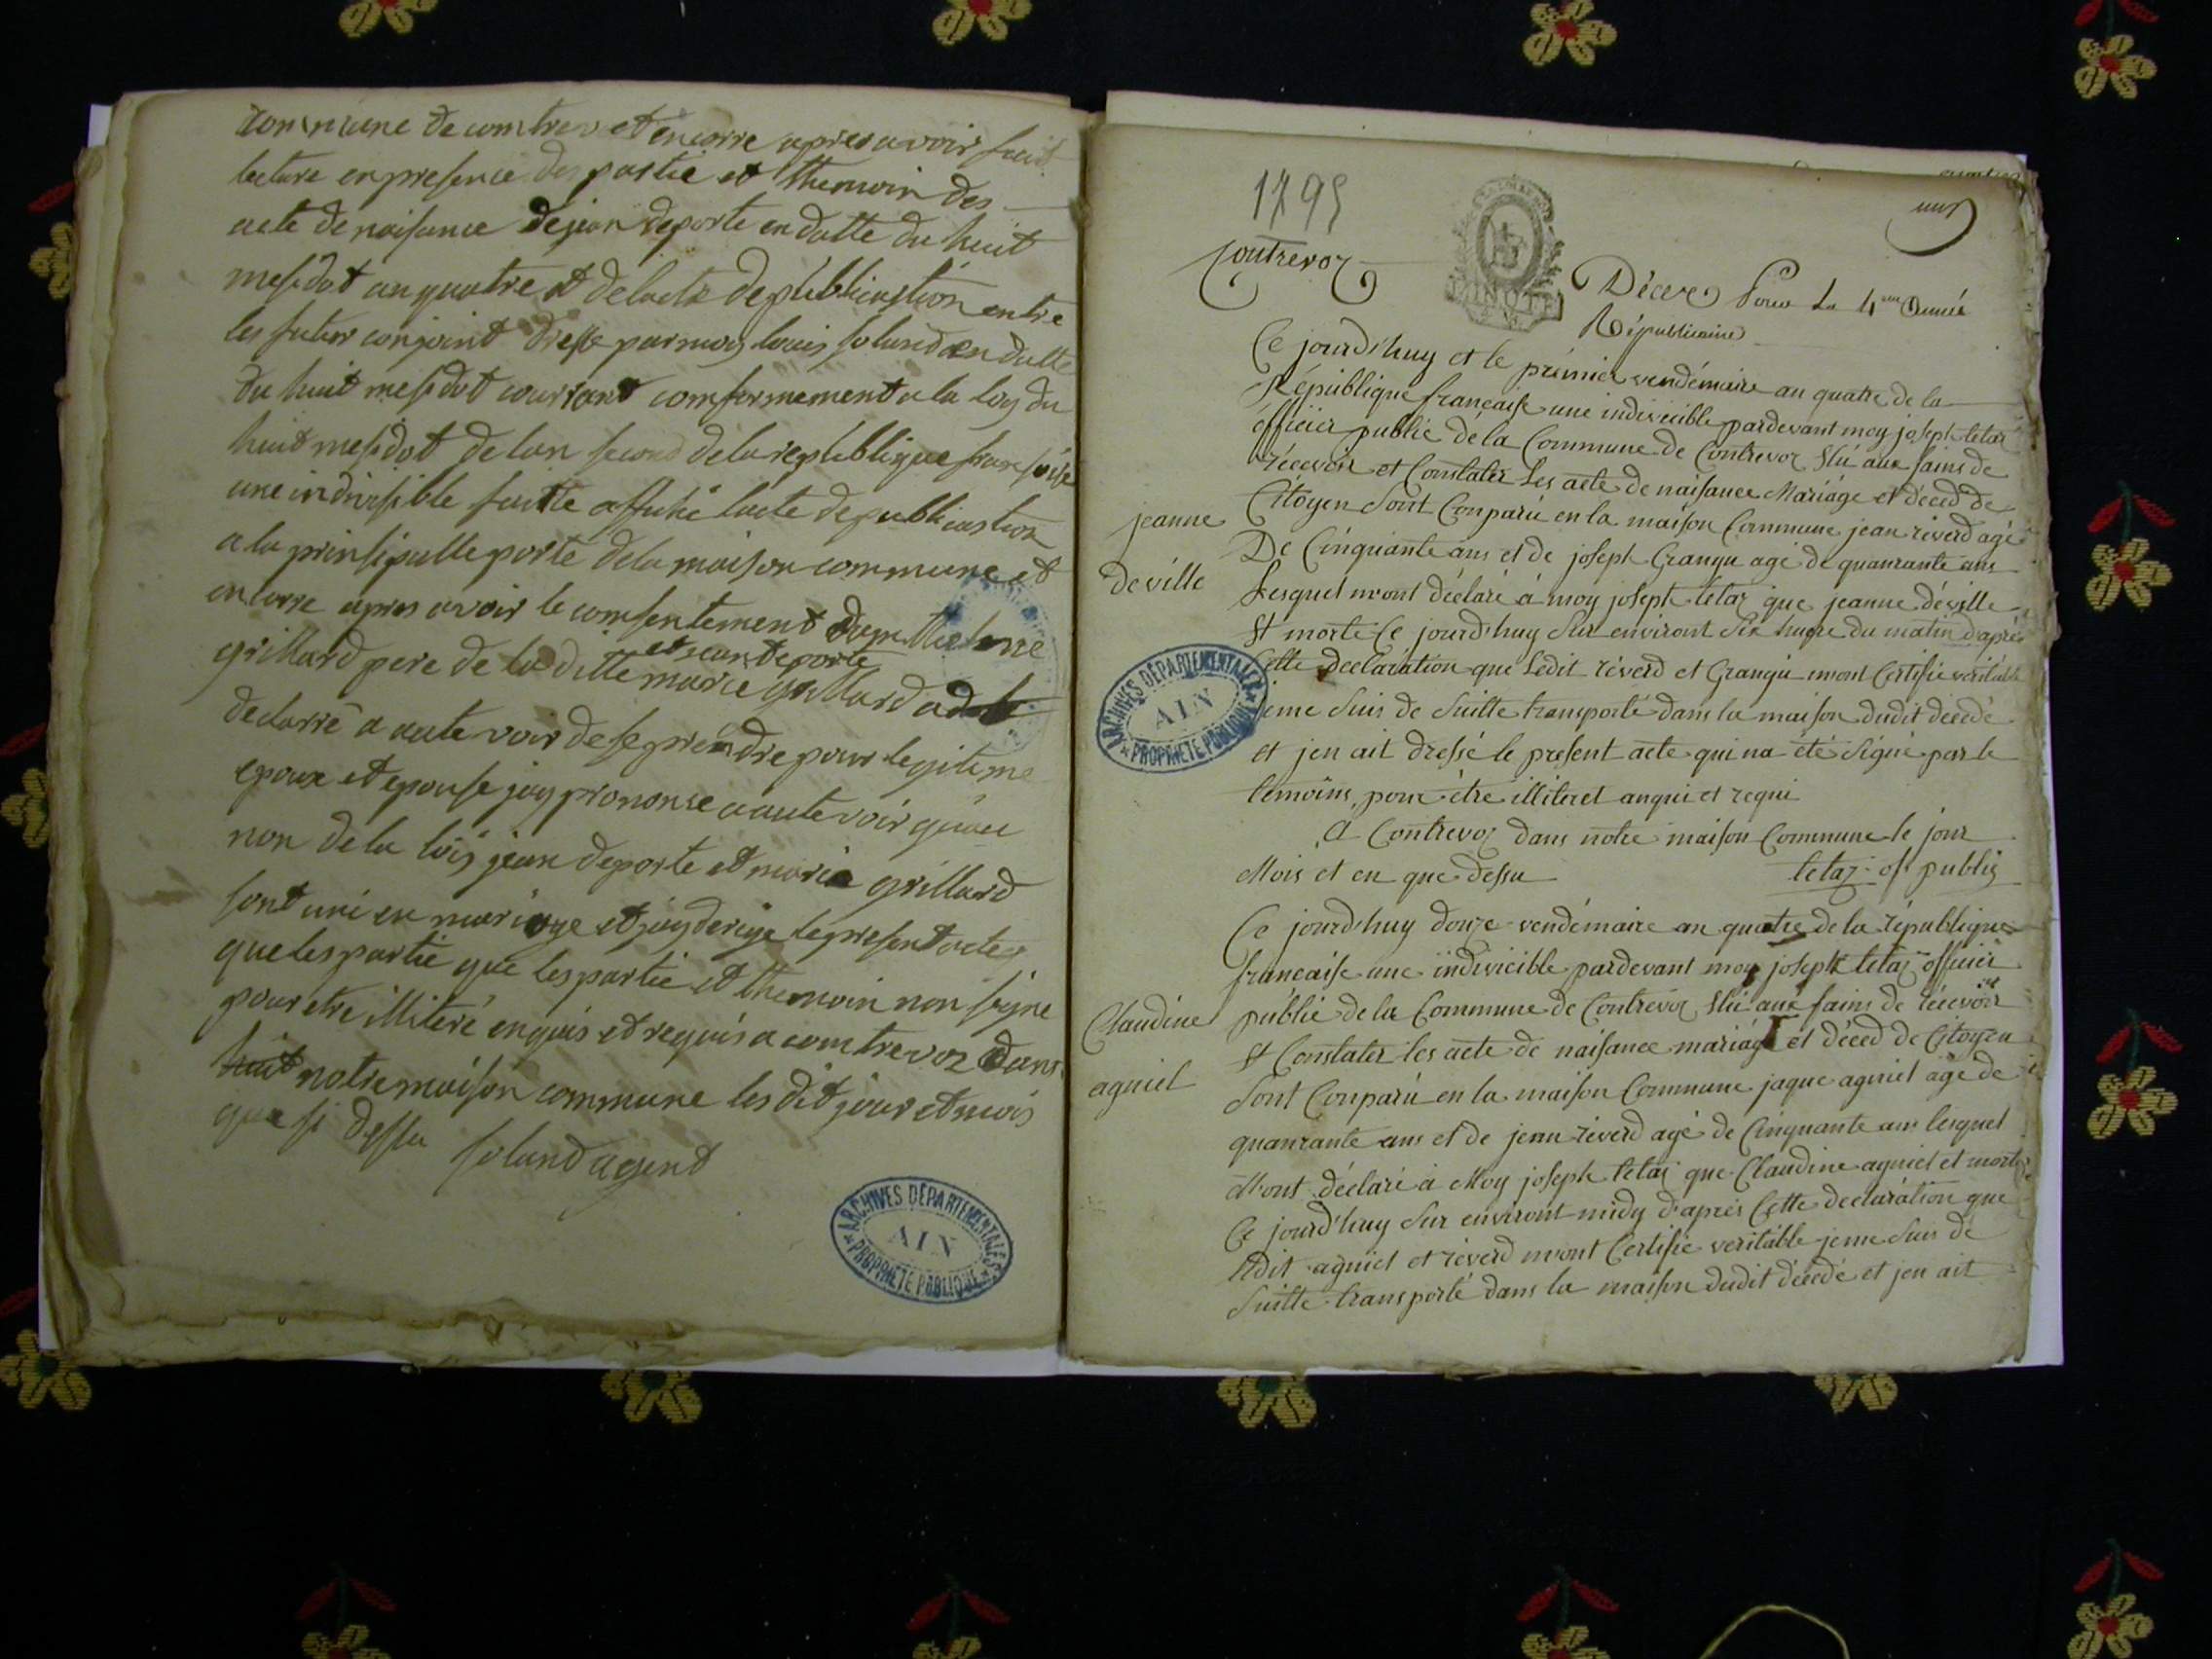 commune de comtrevo et encorre apres avoir fait
lecture en presence des partie et themoin des
acte de naisance de jean deporte en datte du huit
mesidot an quatre et de lacte de publicastion entre
les futur conjoint dresse par moy louis soland en datte
du huit mesidot courrant comformement a la loy du
huit mesidot de lan second de la republique fransoise
une indivisible suitte affiché lacte de publicastion
a la prinsipalle porte de la maison commune et
encorre apres avoir le comsentement
et jean deporte
grillard pere de la ditte marie grillard
declarré a aute voix de se prendre pour legitime
epoux et epouse jay prononse a aute voix quau
non de la lois jean deporte et marie grillard
sont uni en mariage et jay derige le present acte
que les partie que les partie et themoin non signe
pour etre illiteré enquis et requis a comtrevoz dans
huit notre maison commune les dit jour et mois
que si dessu soland agent
ARCHIVES DÉPARTEMENTALES
AIN
PROPRIÉTÉ PUBLIQUE
1795
Contrevoz
Décex Pour La 4eme Année
Républicaine
Ce jourd'huy et le prémier vendémaire an quatre de la
République francaise une indivicible pardevant moy joseph tetaz
officier public de la Commune de Contrevoz Élú aux fains de
récevoir et Constater Les acte de naisance Mariáge et déced de
Citoyen Sont Conparú en la maison Commune jean réverd agé
jeanne
deville
De Cinquante ans et de joseph Grangu agé de quanrante ans
Lesquel mont déclaré á moy joseph tetaz que jeanne déville
Et morte Ce jourd'huy Sur environt Six hugre du matin d'aprés
Cette declaration que Ledit réverd et Grangu mont Certifié veritable
jeme Suis de Suitte transporté dans la maison dudit décédé
et jen ait dressé le present acte qui na été Signé par le
temoins pour étre illiteret anqui et requi
A Contrevoz dans notre maison Commune le jour
Mois et en que dessu tetaz of publiq
ARCHIVES DÉPARTEMENTALES
AIN
PROPRIÉTÉ PUBLIQUE
Ce jourd'huy douze vendémaire an quatre de la république
francaise une indivicible pardevant moy joseph tetaz officier
Claudine
agniel
public de la Commune de Contrevoz Élú aux fains de récevoir
Et Constater les acte de naisance mariáge et déced de Citoyen
Sont Conparú en la maison Commune jaque agniel agé de
quanrante ans et de jean réverd agé de Cinquante ans lesquel
Mont déclaré á Moy joseph tetaz que Claudine agniel et morte
Ce jourd'huy Sur environt midy d'aprés Cette declaration que
Ledit agniel et réverd mont Certifié veritable jeme Suis de
Suitte transporté dans la maison dudit décédé et jen ait